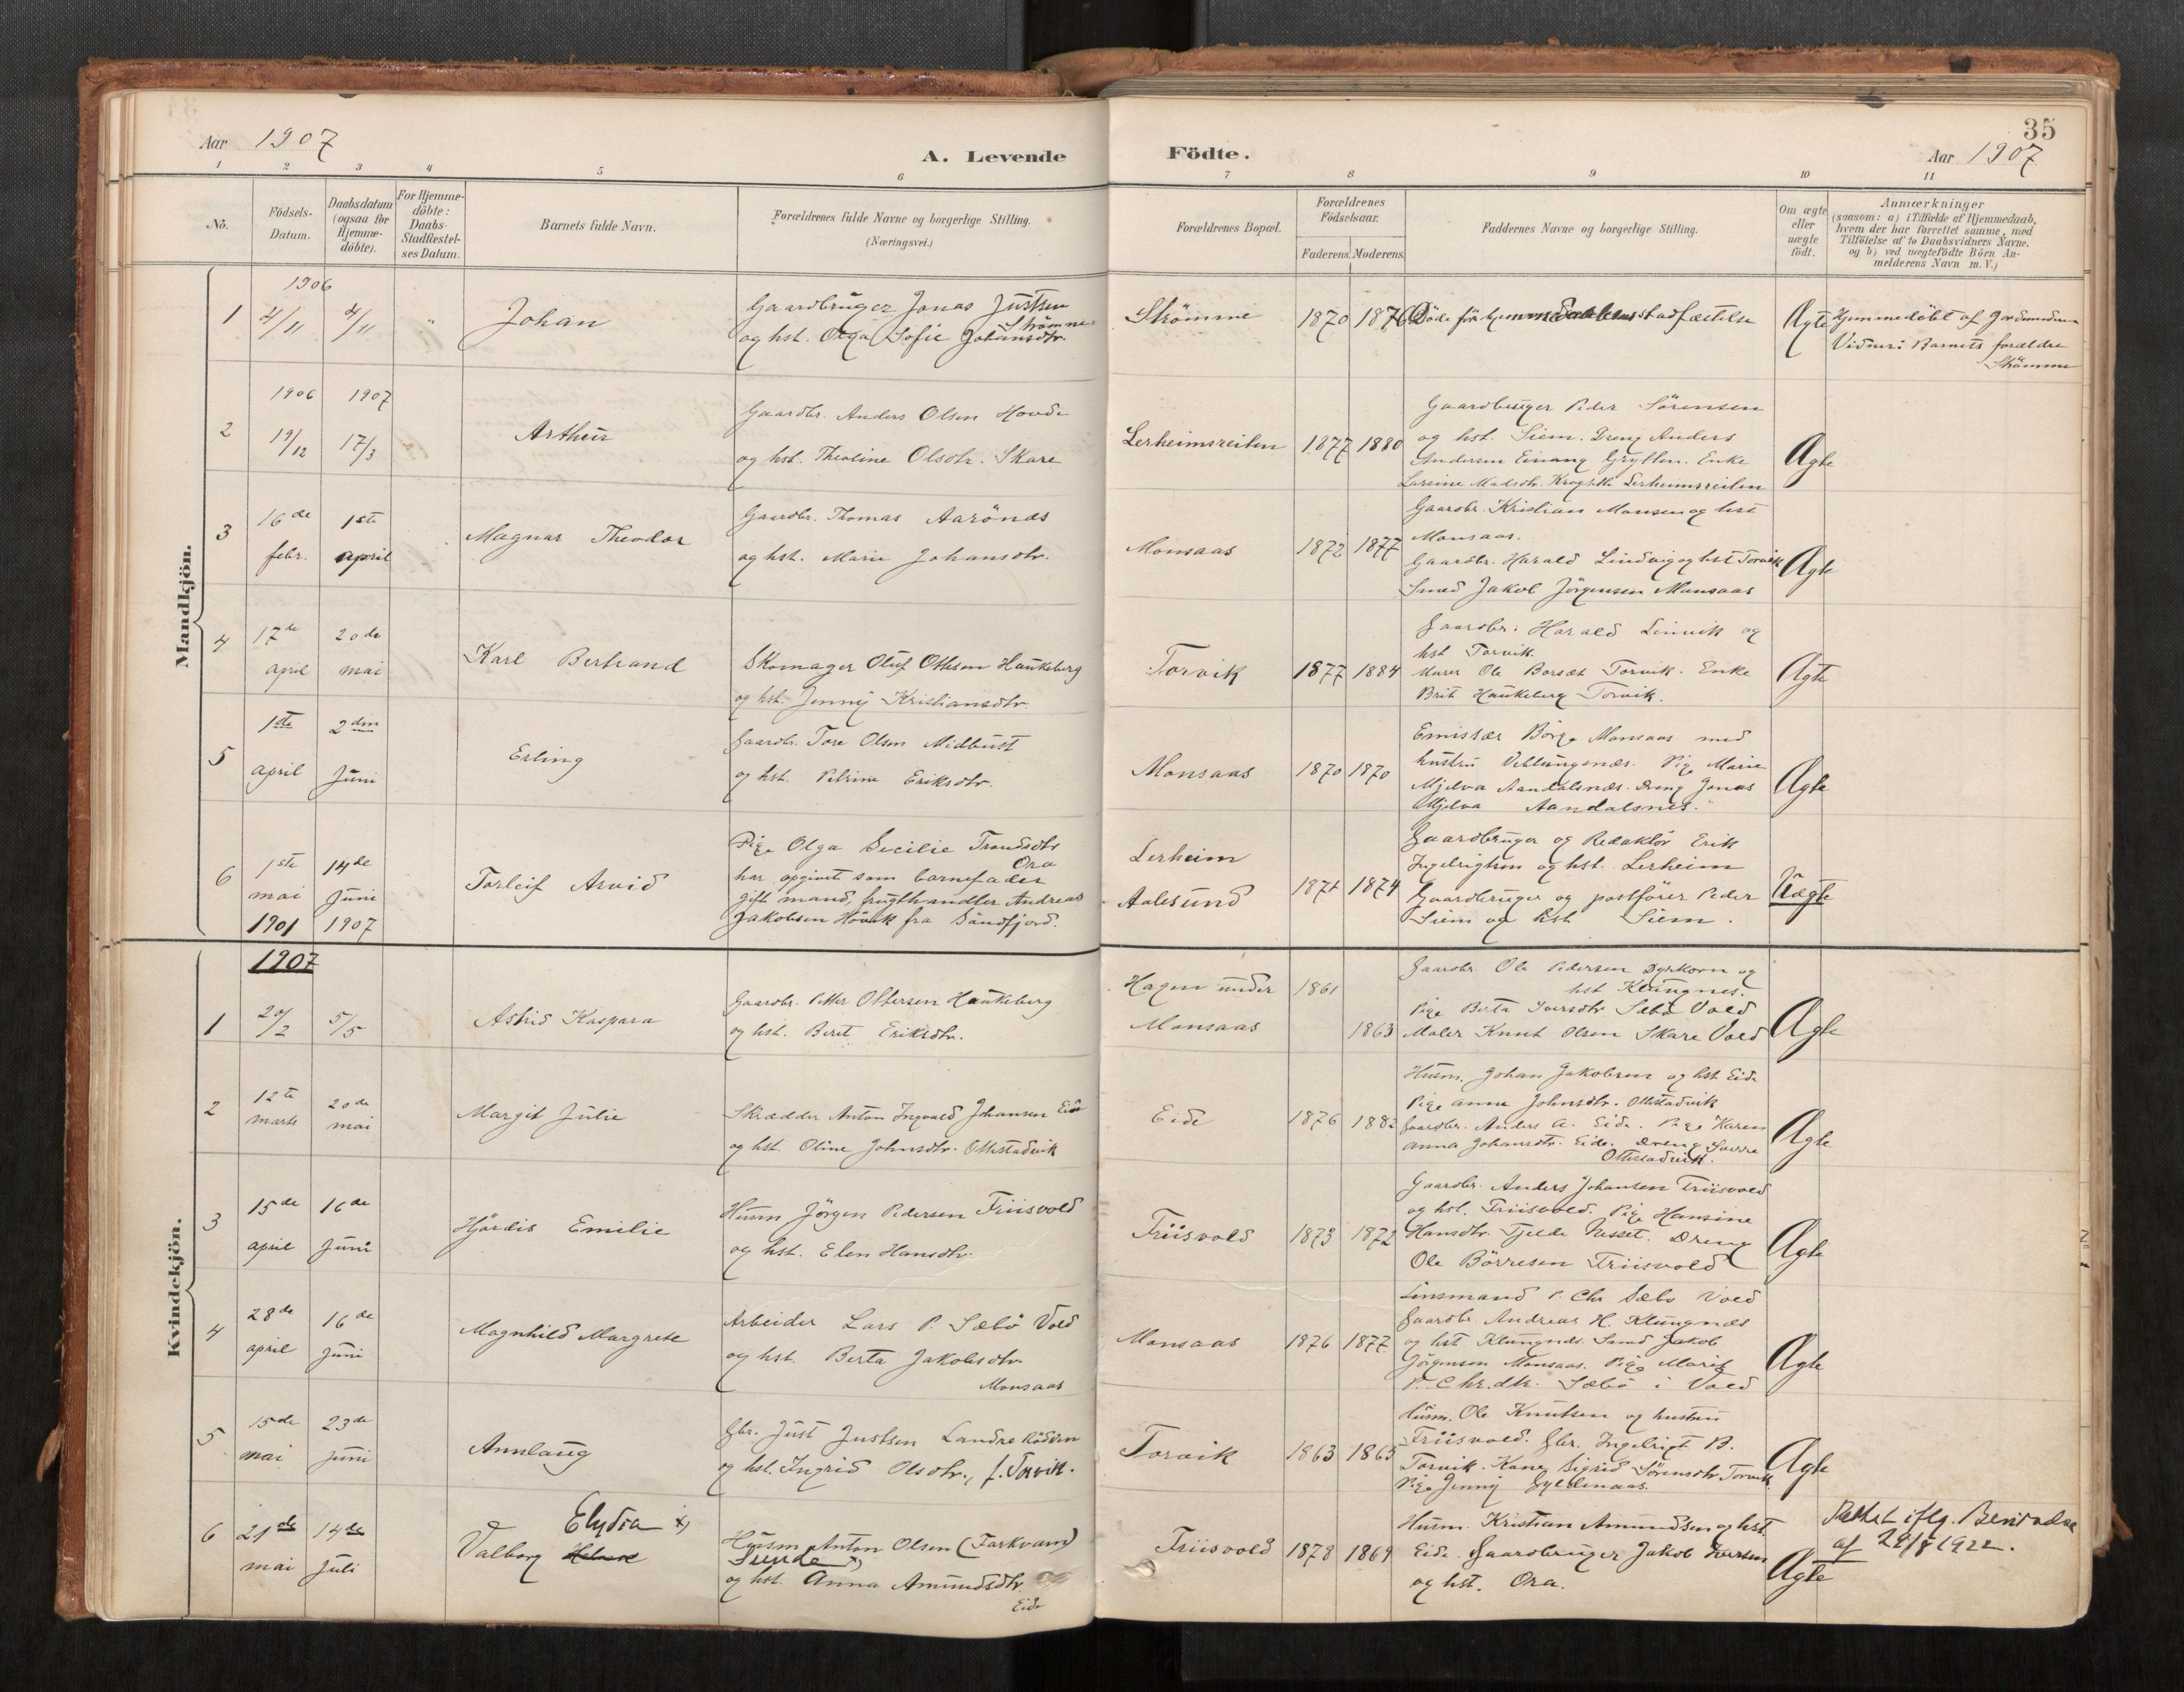 Aar 1907
A. Levende
Födte.
35
Aar 1907
1 2 3 4 5 6 7 8 9 10 11
No.
Födsels-
Datum.
Daabsdatum
(ogsaa for
Hjemme-
döbte).
For Hjemme-
döbte:
Daabs-
Stadfæstel-
ses Datum.
Barnets fulde Navn.
Forældrenes fulde Navne og borgerlige Stilling.
(Næringsvei.)
Forældrenes Bopæl.
Forældrenes
Födselsaar.
Faderens. Moderens.
Faddernes Navne og borgerlige Stilling.
Om ægte
eller
uægte
födt.
Anmærkninger
(saasom: a) i Tilfælde af Hjemmedaab,
hvem der har forrettet samme, med
Tilföielse af to Daabsvidners Navne.
og b) ved uægtefödte Börn An-
melderens Navn m. V.)
Mandkjön.
1906
1 2/11 4/11 " Johan
Gaardbruger Jonas Justsen
Strömme
og hst. Olga Sofie Johansdtr.
Strömme 1870 1876
Döde för hjemmedaabens stadfæstelse
Ægte
Hjemmedöbt af Jordmoderen
Vidner: Barnets forældre
Strömme
1906 1907
2 19/12 17/3 Arthur
Gaardbr. Anders Olsen Hovde
og hst. Theoline Olsdtr. Skare
Lerheimsreiten 1877 1880
Gaardbruger Peder Sörensen
og hst. Siem. Dreng Anders
Andersen Einang Grytten. Enke
Larsine Madsdtr. Krogseth Lerheimsreiten
Ægte
3 16de febr. 1ste april Magnar Theodor
Gaardbr. Thomas Aarönæs
og hst. Marie Johansdtr.
Monsaas 1872 1877
Gaardbr. Kristian Monsen og hst
Monsaas.
Gaardbr. Harald Lindvig og hst Torvik
Smed Jakob Jörgensen Monsaas
Ægte
4 17de april 20de mai Karl Bertrand
Skomager Oluf Ottesen Haukeberg
og hst. Jenny Kristiansdtr.
Torvik 1877 1884
Gaardbr. Harald Linvik og
hst Torvik.
Murer Ole Borsæt Torvik. Enke
Brit Haukeberg Torvik.
Ægte
5 1ste april 2den Juni Erling
Gaardbr. Tore Olsen Midbust
og hst. Petrine Eriksdtr.
Monsaas 1870 1870
Emissær Börge Monsaas med
hustru Veblungsnæs. Pige Marie
Mjelva Aandalsnæs. Dreng Jonas
Mjelva Aandalsnes.
Ægte
6 1ste mai 1901 14de Juni 1907 Torleif Arvid
Pige Olga Secilie Trondsdtr
Ora
har opgivet som barnefader
gift mand, frugthandler Andreas
Jakobsen Hövik fra Söndfjord.
Lerheim
Aalesund
1871 1874
Gaardbruger og Redaktör Erik
Ingebrigtsen og hst. Lerheim
Gaardbruger og postförer Peder
Siem og hst Siem.
Uægte
Kvindekjön.
1907
1 20/2 5/5 Astrid Kaspara
Gaardbr. Petter Ottersen Haukeberg
og hst. Beret Eriksdtr.
Hagen under
Monsaas
1861 1863
Gaardbr. Ole Pedersen Dyrkorn og
hst Klungnes.
Pige Berta Iversdtr Sæbö Vold
Maler Knut Olsen Skare Vold
Ægte
2 12te marts 20de mai Margit Julie
Skrædder Anton Ingvald Johansen Eide
og hst. Oline Johnsdtr. Ottestadvik
Eide 1876 1882
Husm. Johan Jakobsen og hst Eide
Pige Anna Johnsdtr. Ottestadvik
Gaardbr. Anders A. Eide. Pige Karen
Anna Johansdtr. Eide. Dreng Sverre
Ottestadvik.
Ægte
3 15de april 16de Juni Hjördis Emilie
Husm Jörgen Pedersen Friisvold
og hst. Elen Hansdtr.
Friisvold 1873 1872
Gaardbr. Anders Johansen Friisvold
og hst. Friisvold. Pige Hansine
Hansdtr. Tjelde Nesset. Dreng
Ole Börresen Friisvold
Ægte
4 28de april 16de Juni Magnhild Margrete
Arbeider Lars P. Sæbö Vold
og hst. Berta Jakobsdtr
Monsaas
Monsaas 1876 1877
Linsmand P. Chr Sæbö Vold
Gaardbr. Andreas H. Klungnæs
og hst Klungnæs. Smed Jakob
Jörgensen Monsaas. Pige Marit
P. Chr.dtr. Sæbö i Vold
Ægte
5 15de mai 23de Juni Annlaug
Gbr. Just Justsen Landre Rödven
og hst. Ingrid Olsdtr., f. Torvik.
Torvik 1863 1865
Husm. Ole Knutsen og hustru
Friisvold. Gbr. Ingebrigt B.
Torvik. Kone Sigrid Sörensdtr Torvik
Pige Jenny Gyldenaas
Ægte
6 21de mai 14de Juli
Elydia x)
Valborg
Husm Anton Olsen (Tarkvam)
Sunde x)
og hst. Anna Amundsdtr
Eide
Friisvold 1878 1869
Husm. Kristian Amundsen og hst
Eide. Gaardbruger Jakob Iversen
og hst. Ora.
Ægte
Rettet iflg. Bevilladse
af 1922.